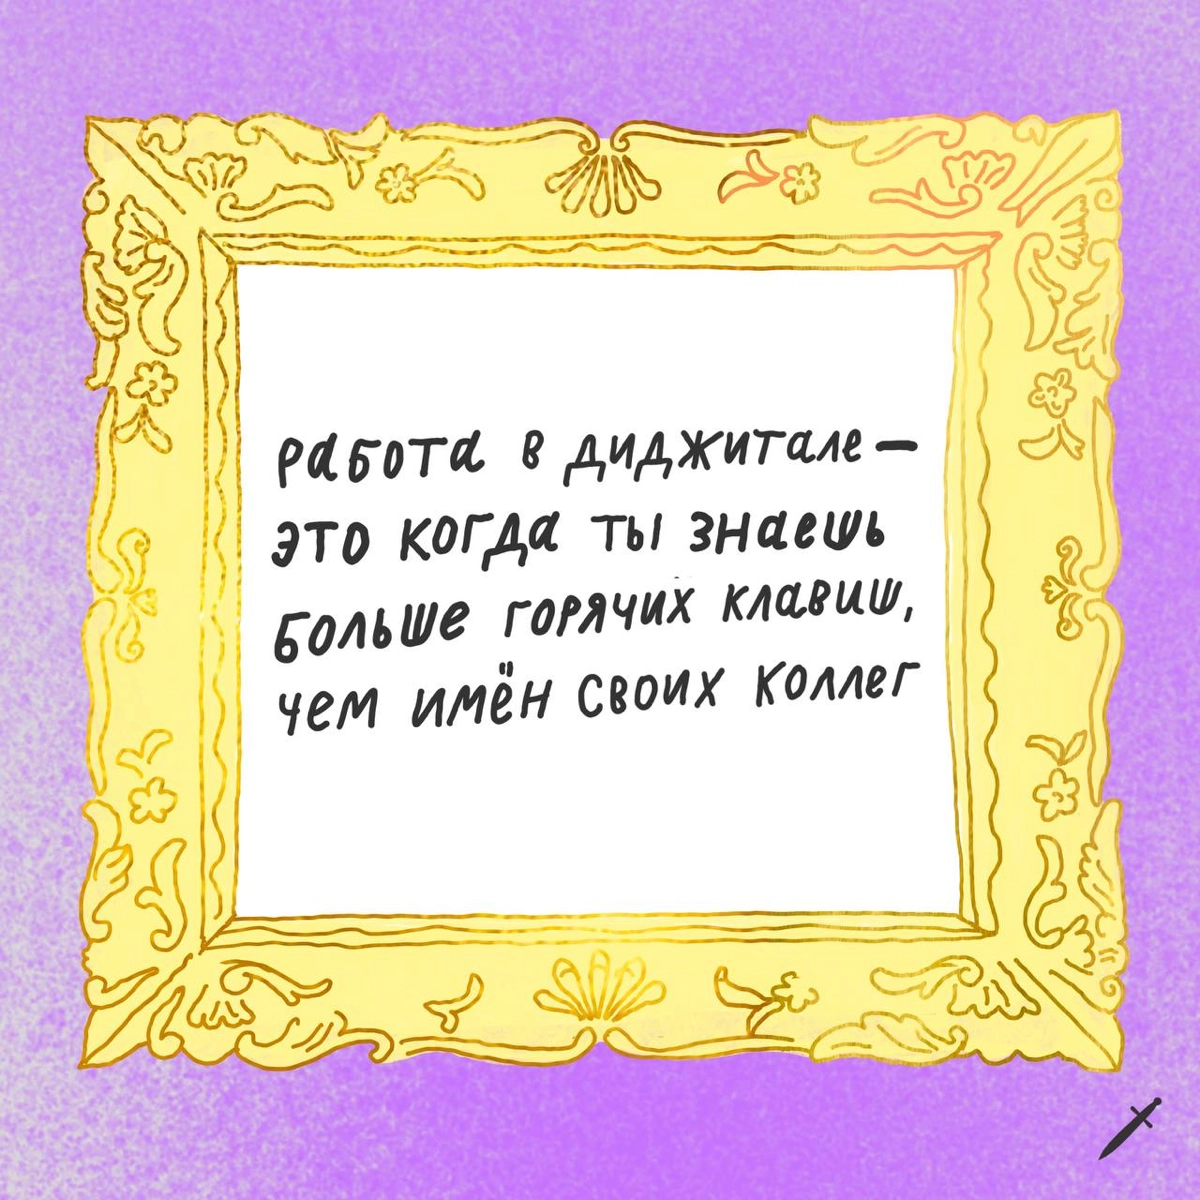 Работа в диджитале —
это когда ты знаешь
больше горячих клавиш,
чем имён своих коллег